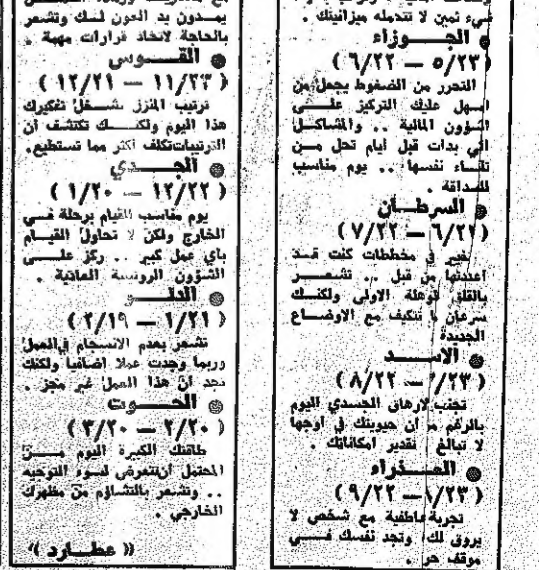 شيء ثمين لا تتحمله ميزانيتك .
● الجـــوزاء
( ٥/٢٣ — ٦/٢٢ )
التحرر من الضغوط يجعل من
اسهل عليك التركيز علـــى
الشؤون المالية .. والمشاكـــل
التي بدات قبل ايام تحل مـــن
تلقاء نفسها .. يوم مناسب
للصداقة .
● السرطـــان
( ٦/٢٣ — ٧/٢٢ )
تغيير في مخططات كنت قـــد
اعددتها من قبل .. تشعـــر
بالقلق للوهلة الاولى ولكنـــك
سرعان ما تتكيف مع الاوضاع
الجديدة
● الاســـد
( ٧/٢٣ — ٨/٢٢ )
تجنب الارهاق الجسدي اليوم
بالرغم من ان حيويتك في اوجها
لا تبالغ تقدير امكاناتك .
● العـــذراء
( ٨/٢٣ — ٩/٢٢ )
تجربة عاطفية مع شخص لا
يروق لك وتجد نفسك فـــي
موقف حرج .
يمدون يد العون لـك وتشعر
بالحاجة لاتخاذ قرارات مهمة .
● القـــوس
( ١١/٢٣ — ١٢/٢١ )
ترتيب المنزل يشـــغل تفكيرك
هذا اليوم ولكنـــك تكتشف ان
الترتيبات تكلف اكثر مما تستطيع .
● الجـــدي
( ١٢/٢٢ — ١/٢٠ )
يوم مناسب للقيام برحلة فـــي
الخارج ولكن لا تحاول القيـــام
باي عمل كبير .. ركز علـــى
الشؤون الروتينية العادية .
● الدلـــو
( ١/٢١ — ٢/١٩ )
تشعر بعدم الانسجام في العمل
وربما وجدت عملا اضافيا ولكنك
تجد ان هذا العمل غير منجز .
● الحـــوت
( ٢/٢٠ — ٣/٢٠ )
طاقتك الكبيرة اليوم مـــن
المحتمل ان تتعرض لسوء التوجيه
.. وتشعر بالتشاؤم من مظهرك
الخارجي .
(( عطـــارد ))